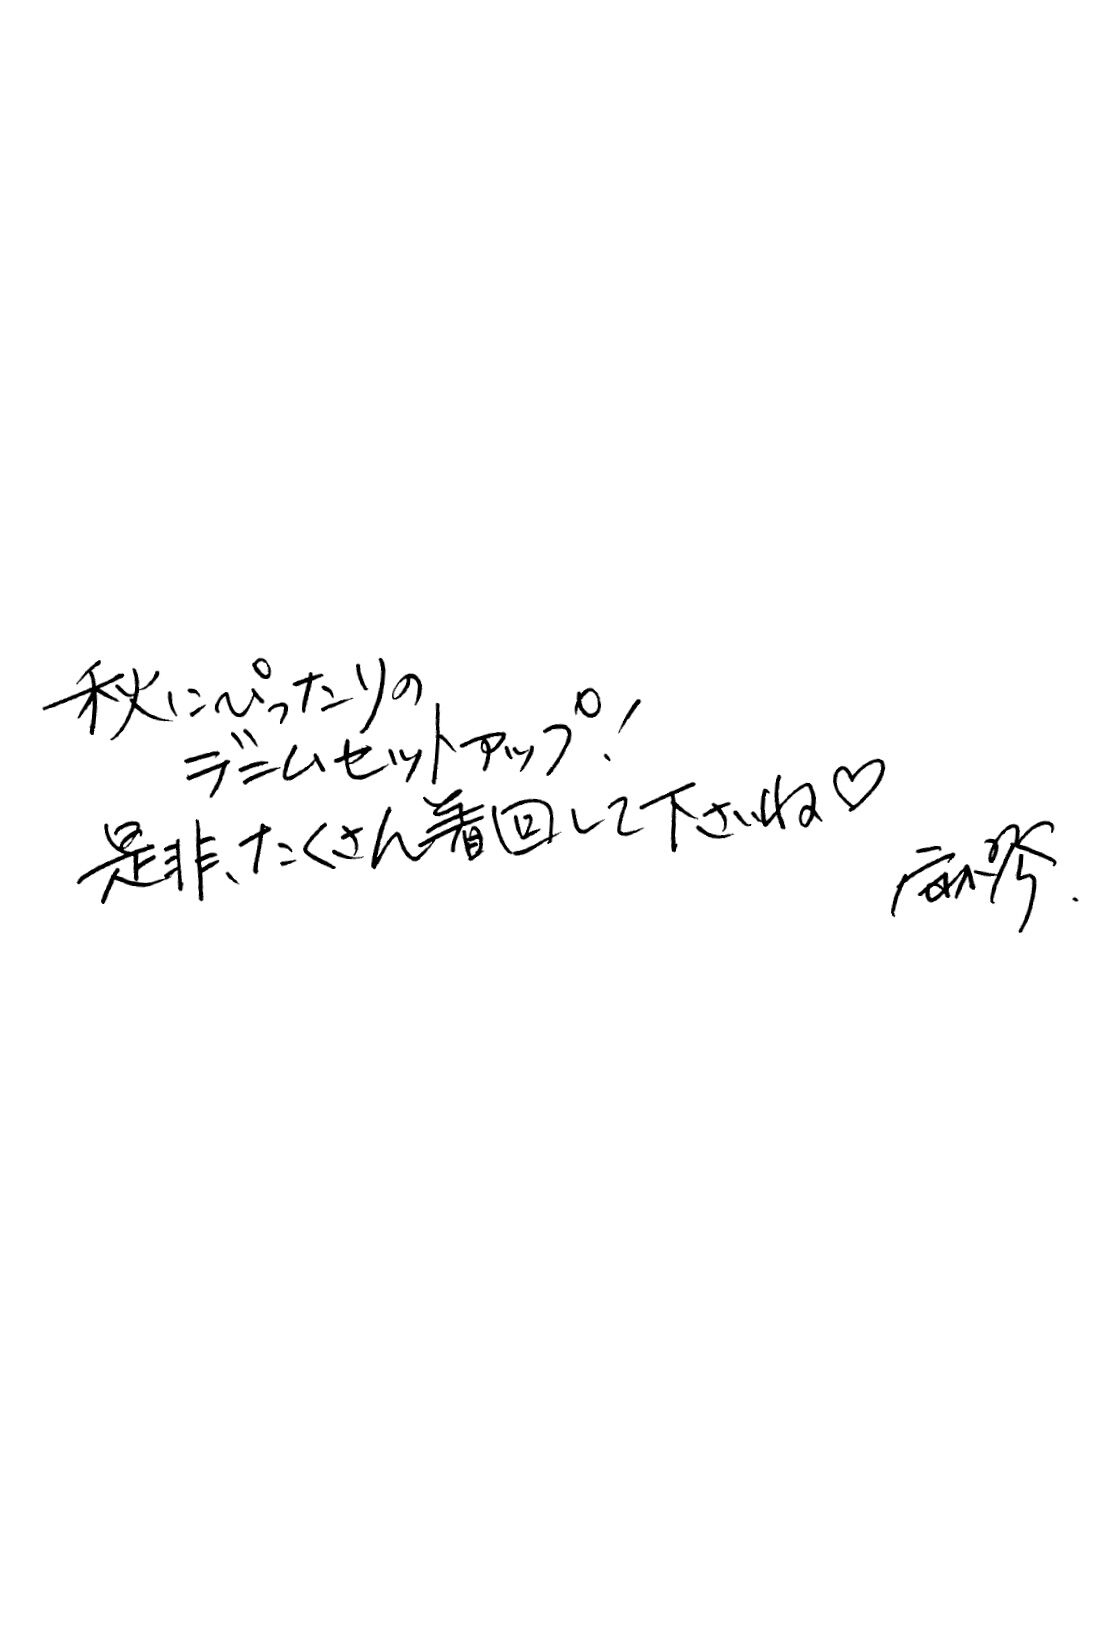 秋にぴったりの
デニムセットアップ!
是非、たくさん着回して下さいね♡